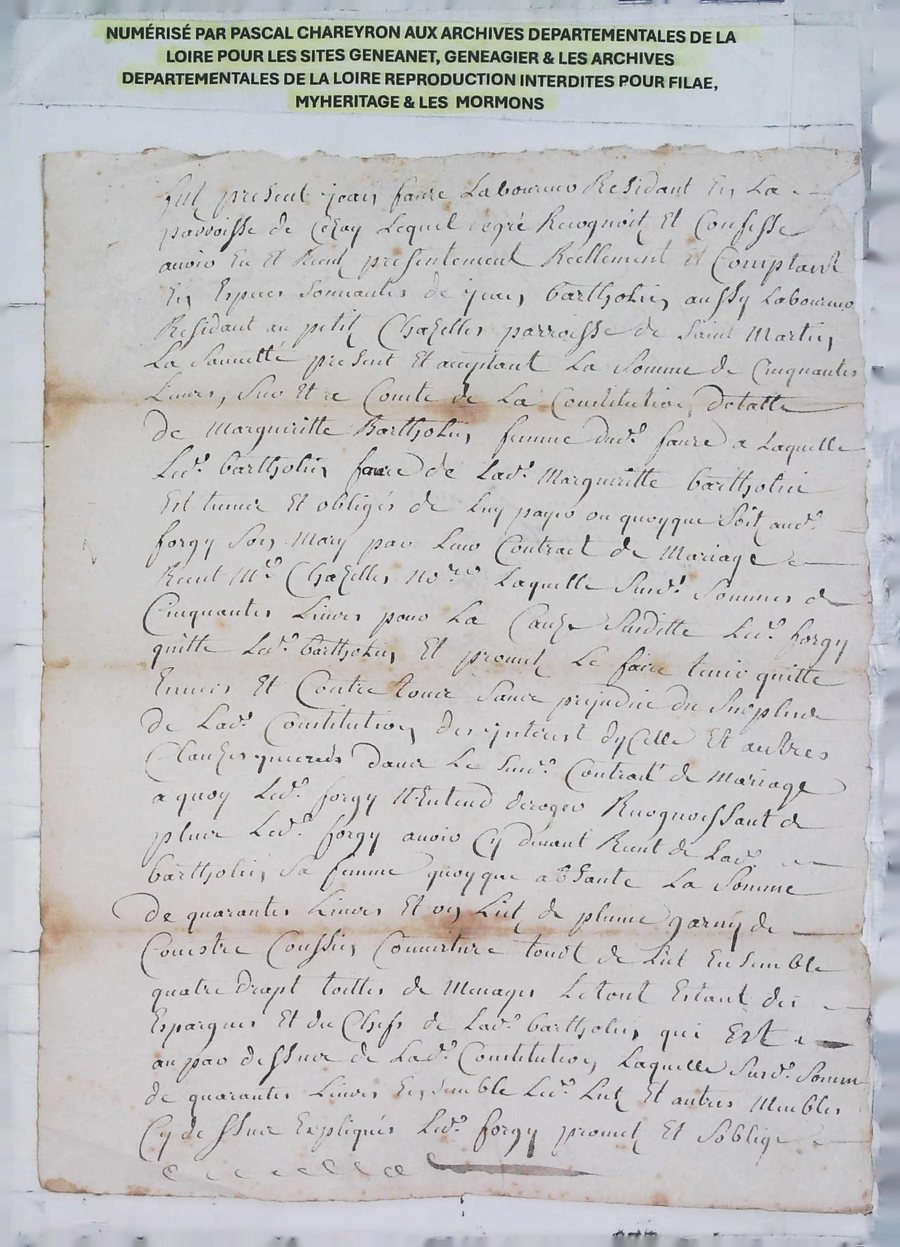 NUMÉRISÉ PAR PASCAL CHAREYRON AUX ARCHIVES DEPARTEMENTALES DE LA
LOIRE POUR LES SITES GENEANET, GENEAGIER & LES ARCHIVES
DEPARTEMENTALES DE LA LOIRE REPRODUCTION INTERDITES POUR FILAE,
MYHERITAGE & LES MORMONS
fut present jean faure Laboureur Residant En La
parroisse de Cezay Lequel degré Recognoit Et Confesse
avoir Eu Et Receu presentement Reellement et Comptant
En Especes Sonnantes de jean barthollin aussy Laboureur
Residant au petit Chazelles parroisse de Saint Martin
La Sauvetté present Et acceptant La Somme de Cinquantes
Livres, Sur Et a Comte de La Constitution dotalle
de Margueritte Barthollin femme dud. faure a Laquelle
Led. barthollin de Lad. Margueritte barthollin
Est tenue Et obligés de Luy payer ou quoyque Soit aud.
forgy Son Mary par Leur Contract de Mariage
Receu Me. Chazelles nore. Laquelle Surd. Sommes de
Cinquantes Livres pour La Cauze Surditte Led. forgy
quitte Led. barthollin Et promet Le faire tenir quitte
Envers Et Contre tous Sans prejudice du Surplus
de Lad. Constitution des interest dycelle Et autres
Clauzes dans Le Surd. Contract de Mariage
a quoy Led. forgy N'Entend deroger Recognoissant de
plus Led. forgy avoir Cy devant Receu de Lad.
barthollin Sa femme quoyque abSante La Somme
De quarantes Livres Et un Lict de plume garny de
Couestre Coussin Couverture tout de Lict Ensemble
quatre drapt toilles de Menages Le tout Estant des
Espargnes Et de Chefs de Lad. barthollin qui Est
au par dessus de Lad. Constitution Laquelle Surd. Somme
de quarantes Livres Ensemble Led. Lict Et autres Meubles
Cy dessus Expliqués Led. forgy promet Et Soblige